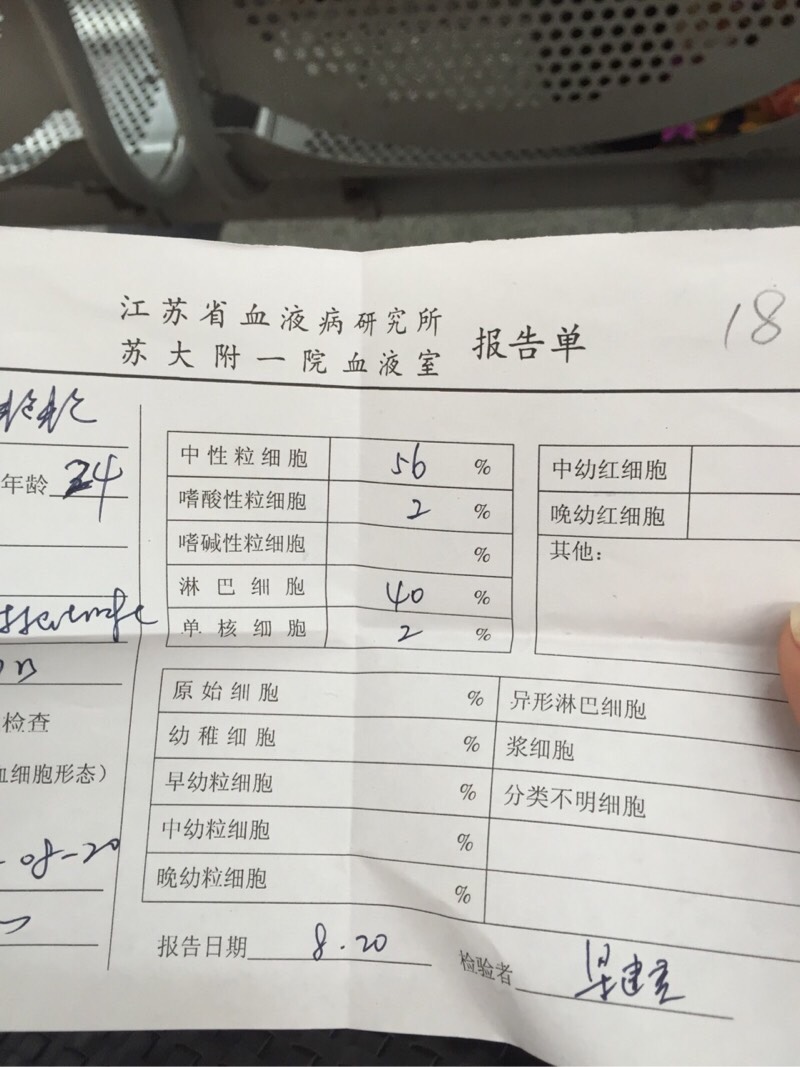 江苏省血液病研究所
苏大附一院血液室
报告单
18
年龄 24
检查
血细胞形态）
-08-20
中性粒细胞 56 %
嗜酸性粒细胞 2 %
嗜碱性粒细胞 %
淋巴细胞 40 %
单核细胞 2 %
中幼红细胞
晚幼红细胞
其他：
原始细胞 %
幼稚细胞 %
早幼粒细胞 %
中幼粒细胞 %
晚幼粒细胞 %
异形淋巴细胞
浆细胞
分类不明细胞
报告日期 8.20
检验者